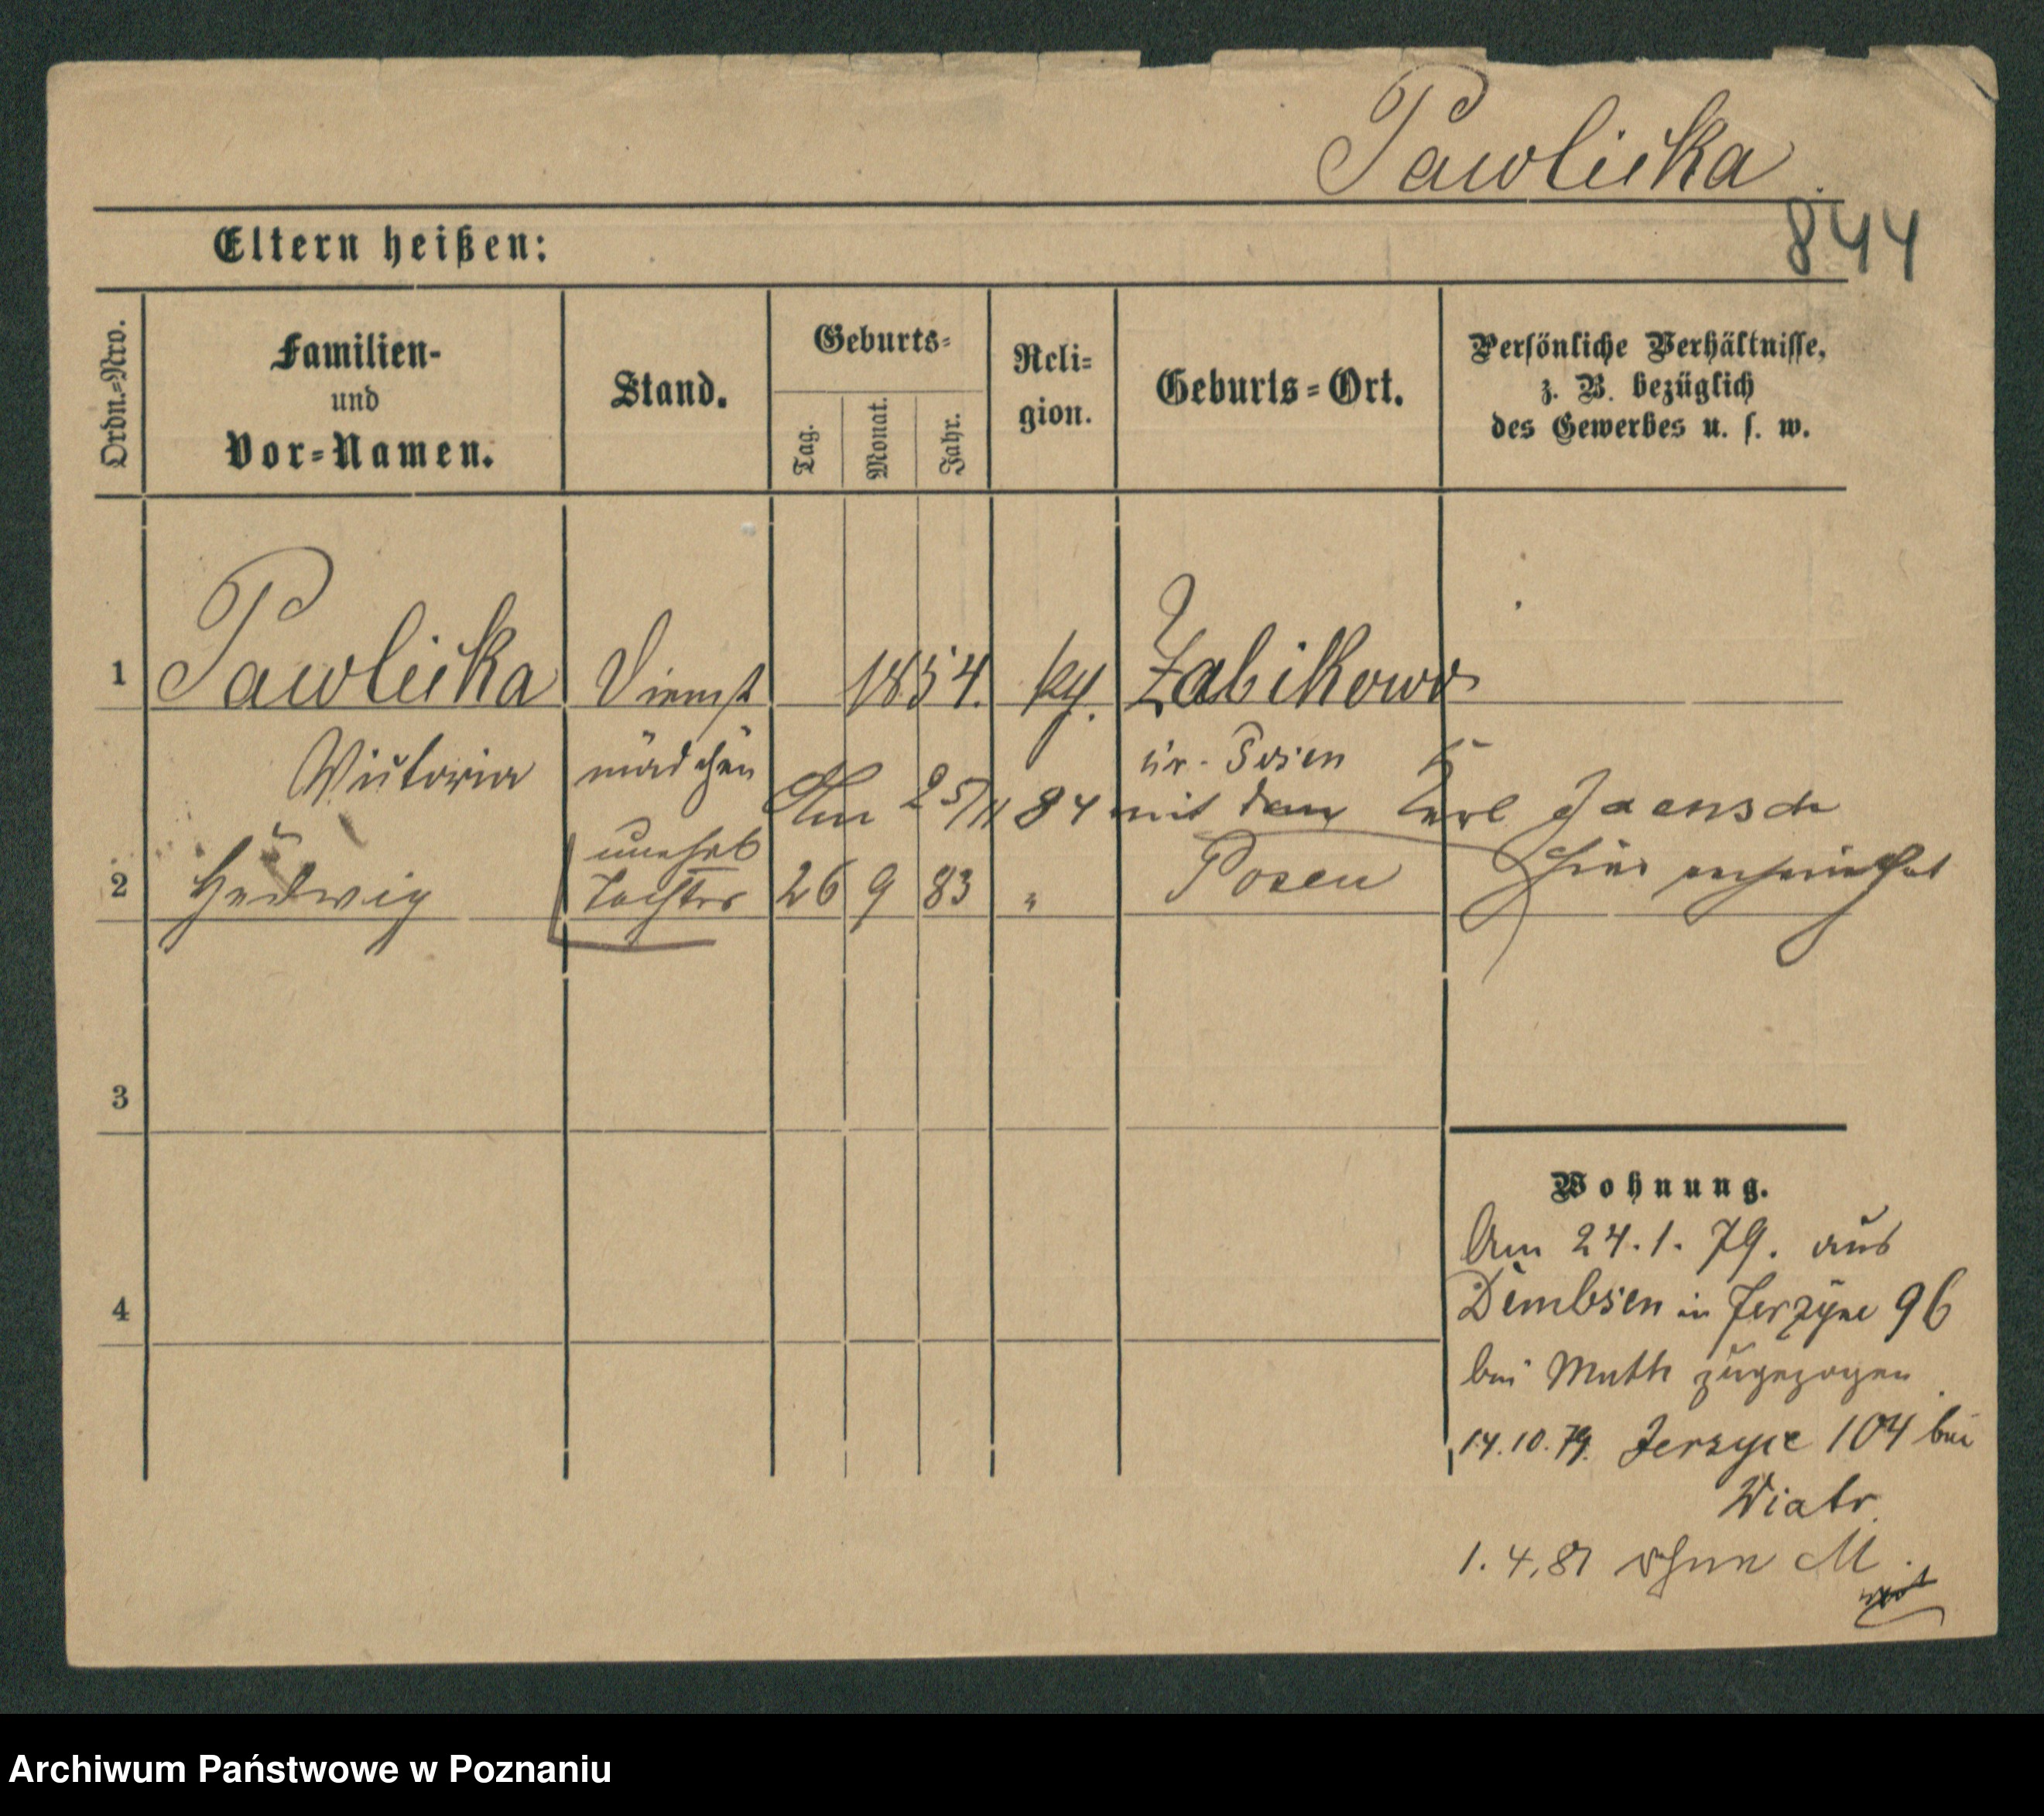 Pawlicka
844
Eltern heißen:
Ordn.-Nro.
Familien-
und
Vor-Namen.
Stand.
Geburts-
Tag.
Monat.
Jahr.
Reli-
gion.
Geburts-Ort.
Persönliche Verhältnisse,
z. B. bezüglich
des Gewerbes u. s. w.
1 Pawlicka Dienst 1854. kg. Zabikowo
Victoria mädchen Kr. Posen
Am 25/11 84 mit dem Karl Jaensch
hier verheirathet
2 Hedwig unehel Tochter 26 9 83 " Posen
3
4
Wohnung.
Am 24.1.79. aus
Dembsen in Jerzyce 96
bei Muth zugezogen
14.10.79. Jerzyce 104 bei
Wiatr
1.4.81 ohne M.
Archiwum Państwowe w Poznaniu